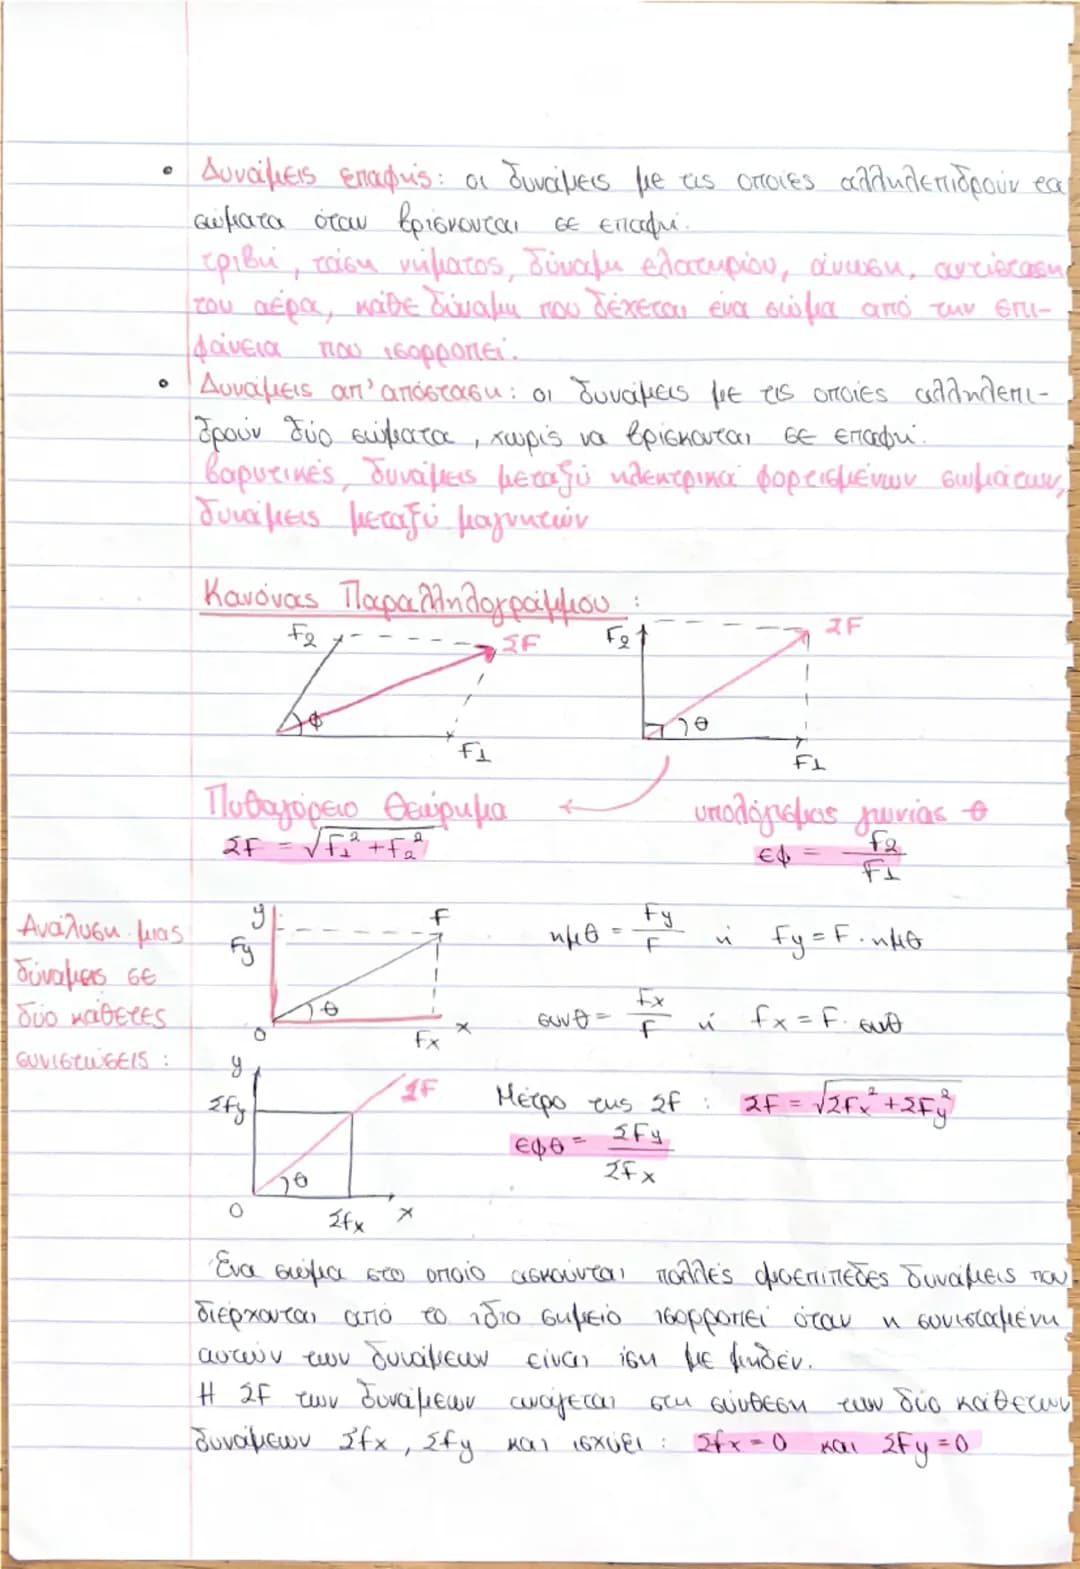 • Δυνάμεις επαφής: οι δυνάμεις με τις οποίες αλληλεπιδρούν τα
σώματα όταν βρίσκονται σε επαφή.
τριβή, τάση νήματος, δύναμη ελατηρίου, άνωση, αντίσταση
του αέρα, κάθε δύναμη που δέχεται ένα σώμα από την επι-
φάνεια που ισορροπεί.
• Δυνάμεις απ' απόσταση: οι δυνάμεις με τις οποίες αλληλεπι-
δρούν δύο σώματα, χωρίς να βρίσκονται σε επαφή.
βαρυτικές, δυνάμεις μεταξύ ηλεκτρικά φορτισμένων σωμάτων,
δυνάμεις μεταξύ μαγνητών
Κανόνας Παραλληλογράμμου :
F2 ΣF F2 ΣF
φ θ
F1 F1
Πυθαγόρειο Θεώρημα υπολόγισμος γωνίας θ
ΣF = √F1² + F2² εφ = F2/F1
Ανάλυση μιας
δύναμης σε
δύο κάθετες
συνιστώσεις :
y F
Fy
θ
O Fx x
ημθ = Fy/F ή Fy = F · ημθ
συνθ = Fx/F ή Fx = F · συνθ
y ΣF
ΣFy
θ
O ΣFx x
Μέτρο της ΣF : ΣF = √ΣFx² + ΣFy²
εφθ = ΣFy/ΣFx
Ένα σώμα στο οποίο ασκούνται πολλές ομοεπίπεδες δυνάμεις που
διέρχονται από το ίδιο σημείο ισορροπεί όταν η συνισταμένη
αυτών των δυνάμεων είναι ίση με μηδέν.
Η ΣF των δυνάμεων ανάγεται στη σύνθεση των δύο κάθετων
δυνάμεων ΣFx, ΣFy και ισχύει : ΣFx = 0 και ΣFy = 0